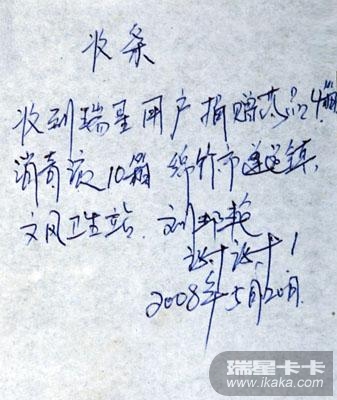 收条
收到瑞星用户捐赠药品4箱
消毒液10箱 绵竹市遵道镇
文风卫生站. 刘邦艳
谢谢!
2008年5月20日.
瑞星卡卡
www.ikaka.com